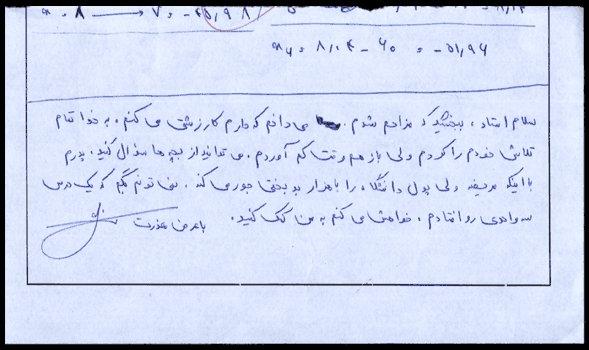 = -۵۱,۹۶ ۸/۰۴ - ۶۰
سلام استاد، ببخشید که مزاحم شدم. می دانم که دارم کار زشتی می کنم. به خدا تمام
تلاش خودم را کردم ولی باز هم وقت کم آوردم. می توانید از بچه ها سؤال کنید. پدرم
با اینکه مریضه ولی پول دانشگاه را با هزار بدبختی جور می کنه. نمی تونم بگم که یک درس
سه واحدی رو افتادم. خواهش می کنم به من کمک کنید. با عرض معذرت